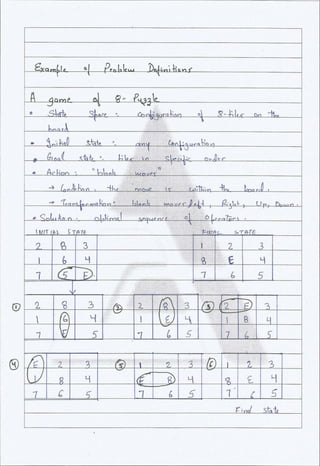 Example of Problem Definitions
A game of 8- Puzzle
• State Space : Configuration of 8-tiles on the
board
• Initial state : any Configuration
• Goal state : tiles in specific order
• Action : "blank moves"
→ Condition : the move is within the board.
→ Transformation: blank moves left, Right, Up, Down.
• Solution : optimal sequence of Operators.
INITIAL STATE FINAL STATE
2 8 3 1 2 3
1 6 4 8 E 4
7 5 E 7 6 5
① 2 8 3 ② 2 8 3 ③ 2 E 3
1 6 4 1 E 4 1 8 4
7 E 5 7 6 5 7 6 5
④ E 2 3 ⑤ 1 2 3 ⑥ 1 2 3
1 8 4 E 8 4 8 E 4
7 6 5 7 6 5 7 6 5
Final State